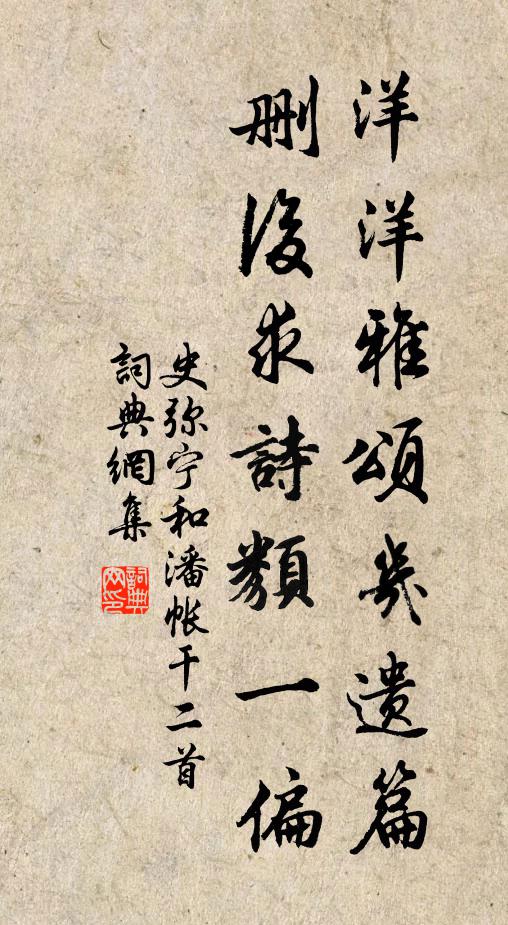 洋洋雅頌幾遺篇
刪後求詩類一偏
史弥宁和潘帐干二首
詞典網集
詞典網印